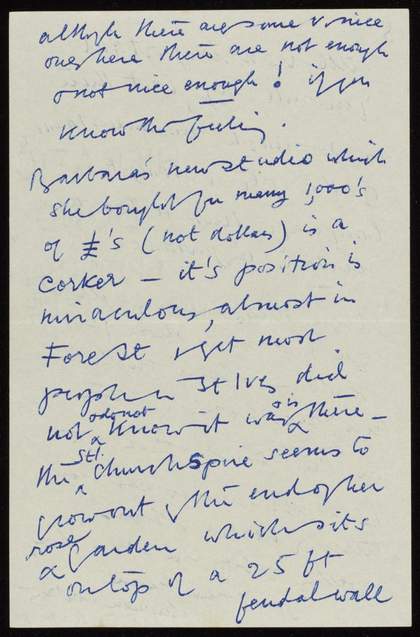 although there are some v. nice
ones here there are not enough
& not nice enough! if you
know the feeling.
Barbara's new studio which
she bought for many 1,000's
of £'s (not dollars) is a
corker – it's position is
miraculous, almost in
Forest & yet most
people in St Ives did
not & do not know it was & is there –
the St I. Church spire seems to
grow out of the end of her
rose garden which sits
on top of a 25 ft
feudal wall